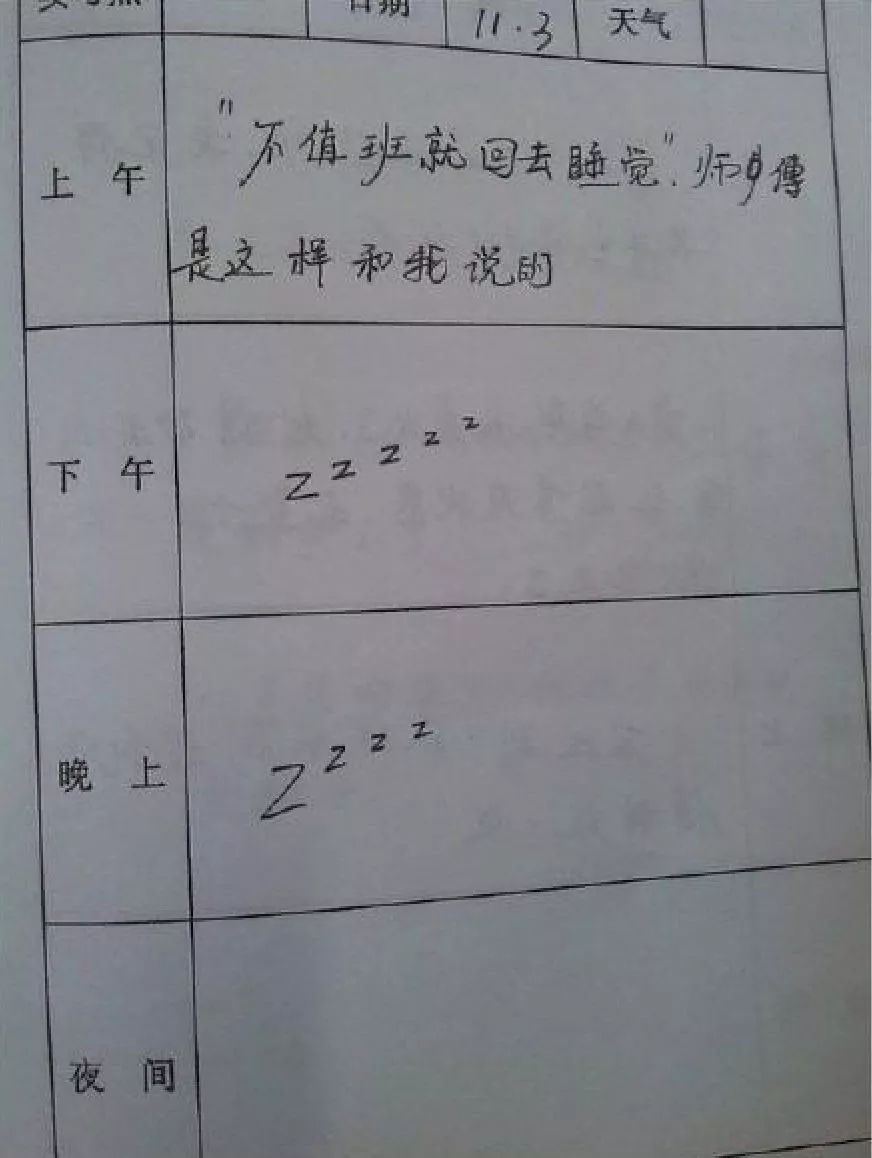 日期 11.3 天气
上午 "不值班就回去睡觉".师傅
是这样和我说的
下午 z z z z z
晚上 Z z z z
夜间